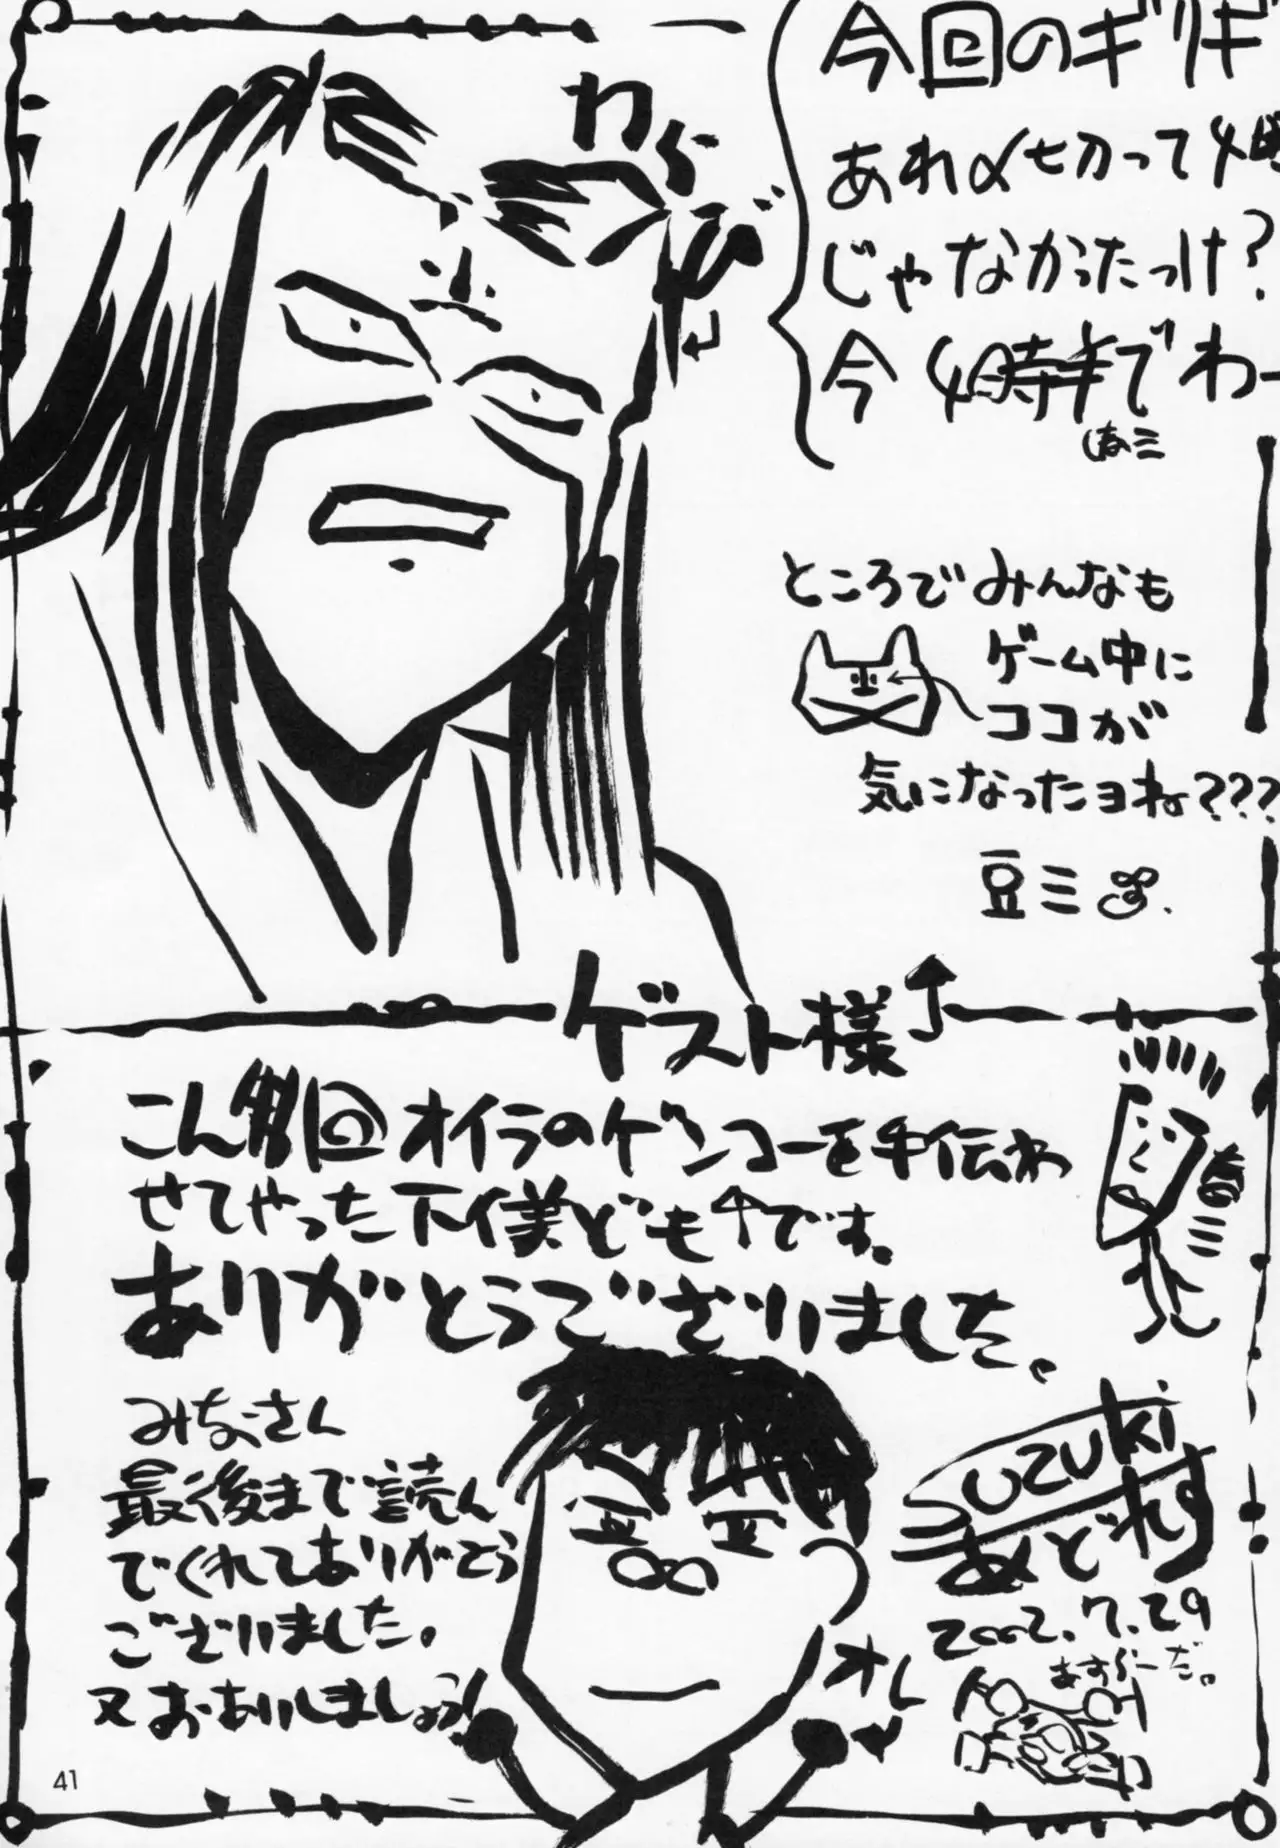 わらび
今回のギリギ
あれ〆切って4時
じゃなかったっけ?
今4時半でわー
ところでみんなも
ゲーム中に
ココが
気になったヨね???
豆ミ
ゲスト様
こん回オイラのゲンコーを手伝わ
せてやった下僕ども↑です。
ありがとうございました。
みなさん
最後まで読ん
でくれてありがとう
ございました。
又おあいしましょう!
オレ
SUZUKi
あどれす
2002.7.29
41